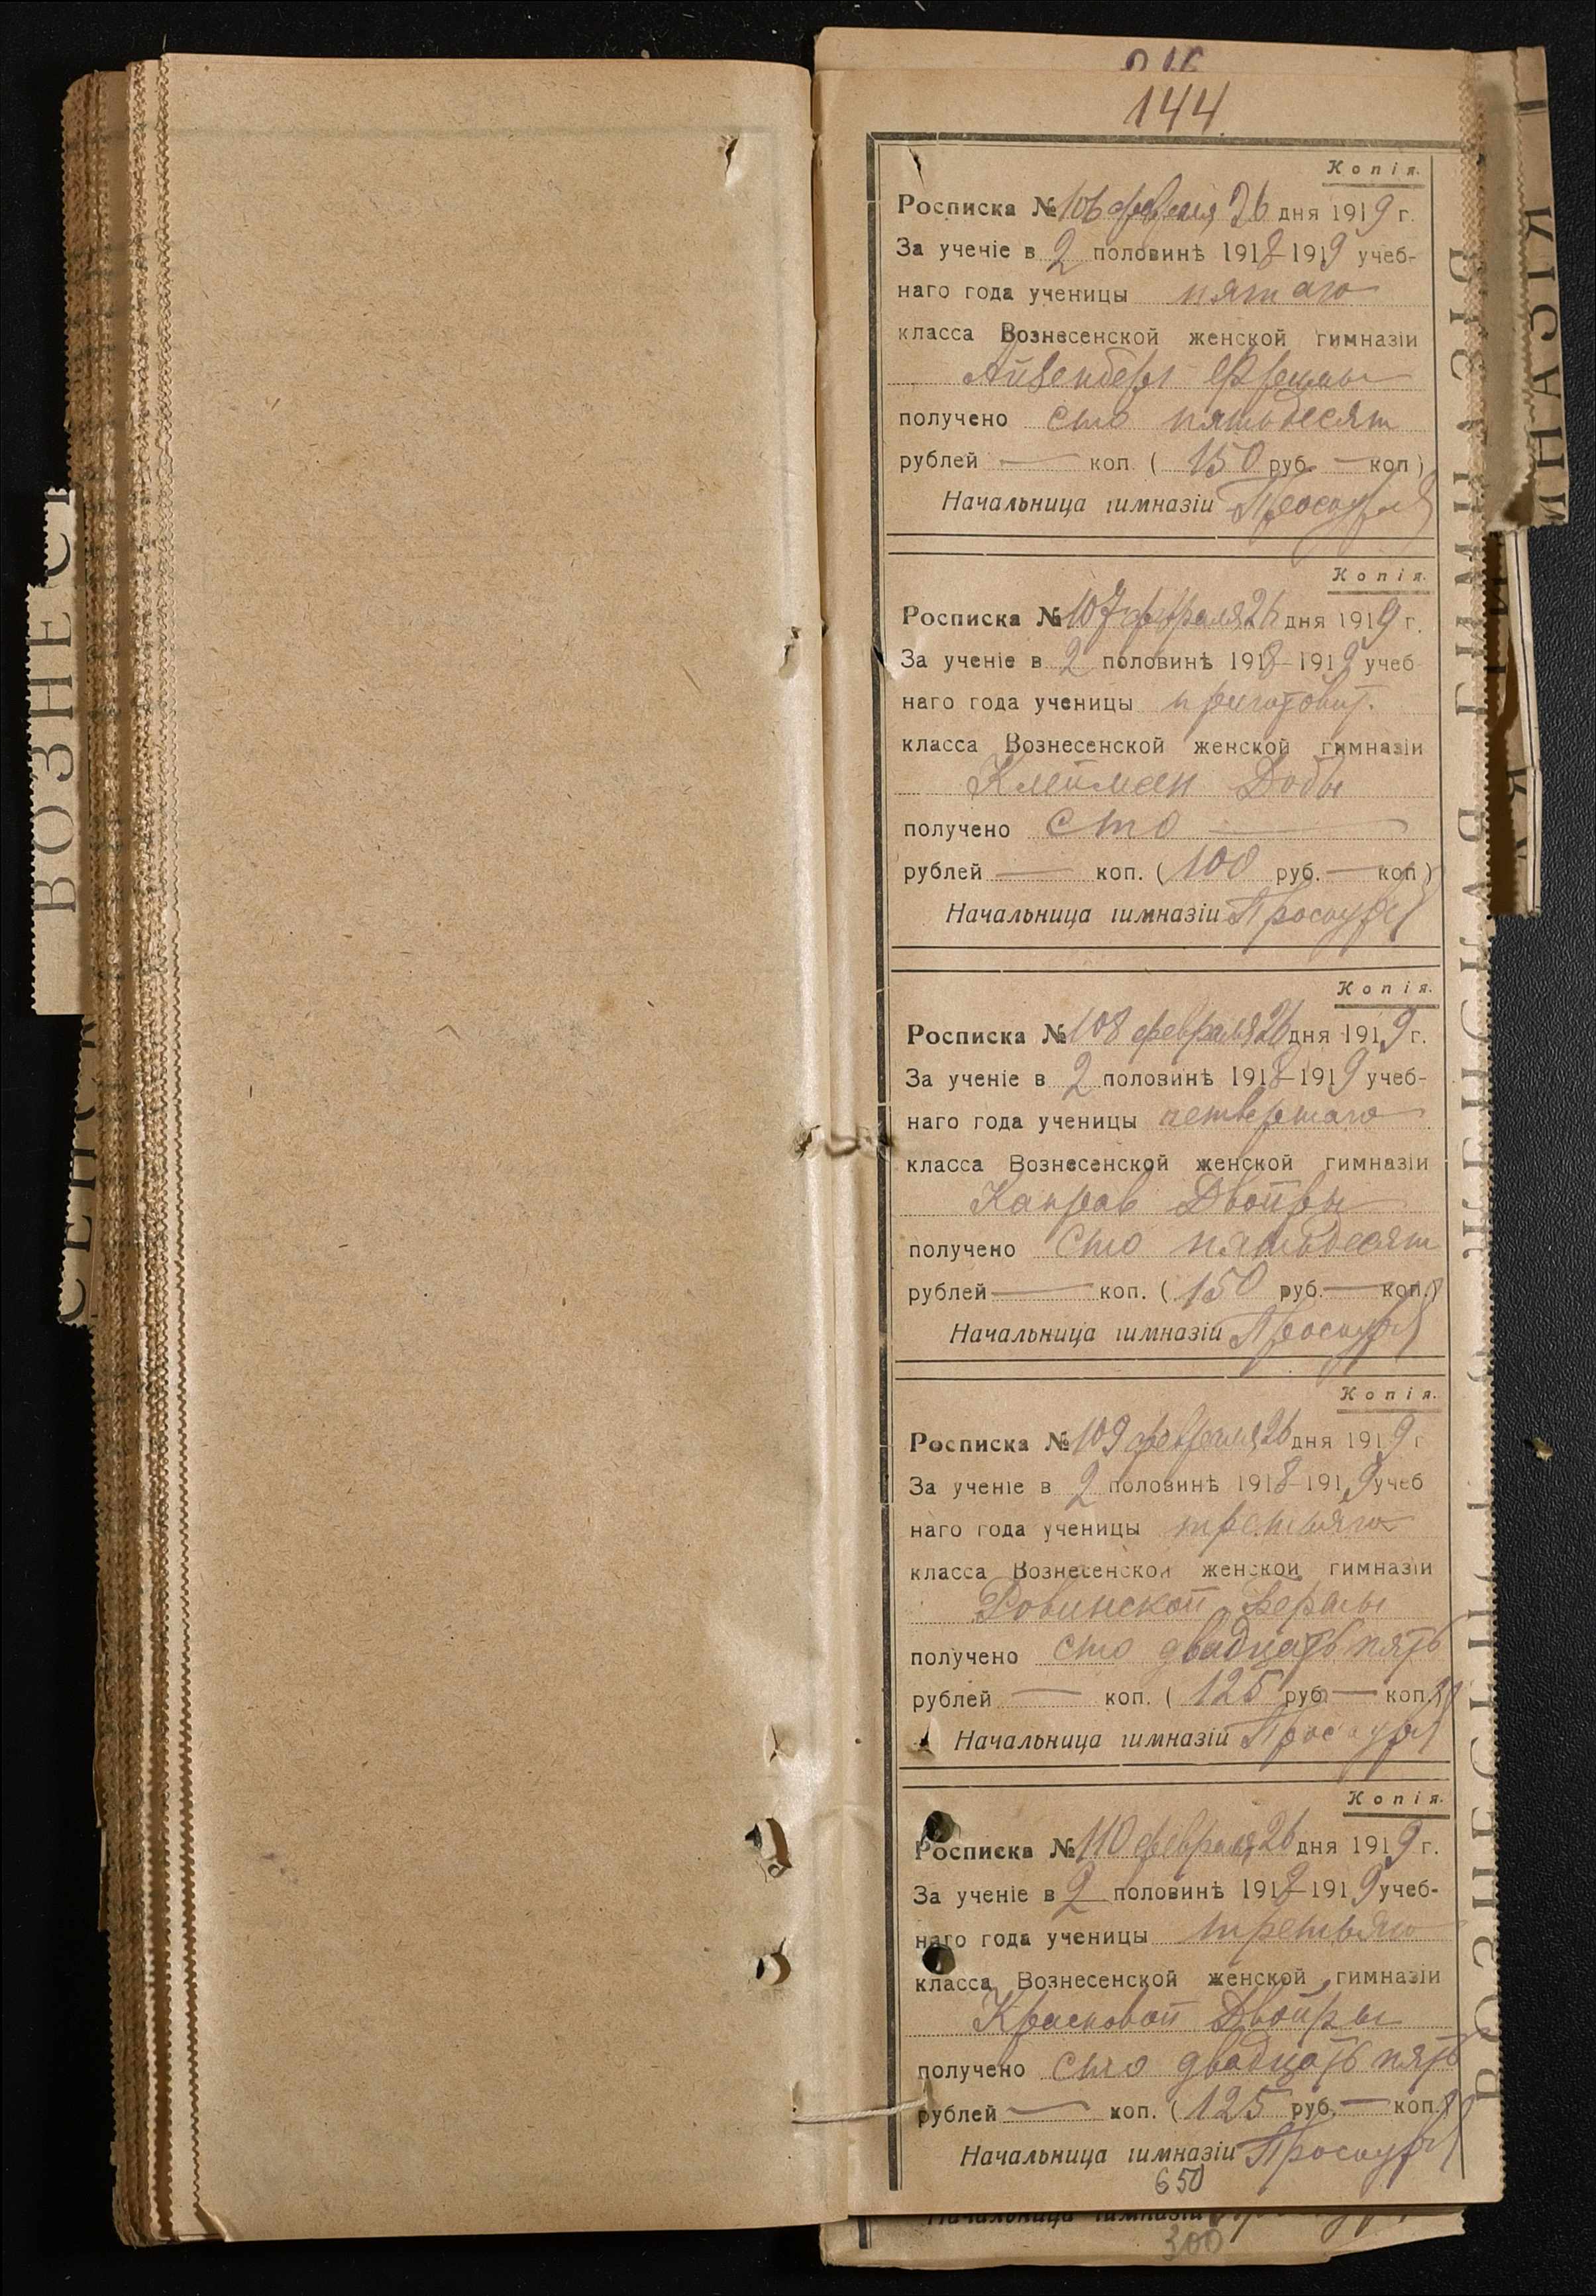 144
Копія.
Росписка № 106 февраля 26 дня 1919 г.
За ученіе в 2 половинѣ 1918-1919 учеб-
наго года ученицы пятаго
класса Вознесенской женской гимназіи
Айзенберг Фрейды
получено сто пятьдесят
рублей — коп. ( 150 руб. — коп )
Начальница гимназіи
Копія.
Росписка № 107 февраля 26 дня 1919 г.
За ученіе в 2 половинѣ 1918-1919 учеб
наго года ученицы приготовит.
класса Вознесенской женской гимназіи
Клейман Добы
получено сто —
рублей — коп. ( 100 руб. — коп )
Начальница гимназіи
Копія.
Росписка № 108 февраля 26 дня 1919 г.
За ученіе в 2 половинѣ 1918-1919 учеб-
наго года ученицы четвертаго
класса Вознесенской женской гимназіи
Двойры
получено сто пятьдесят
рублей — коп. ( 150 руб. — коп.)
Начальница гимназіи
Копія.
Росписка № 109 февраля 26 дня 1919 г
За ученіе в 2 половинѣ 1918-1919 учеб
наго года ученицы третьяго
класса Вознесенской женской гимназіи
Ровинской Берты
получено сто двадцать пять
рублей — коп. ( 125 руб. — коп.)
Начальница гимназіи
Копія.
Росписка № 110 февраля 26 дня 1919 г.
За ученіе в 2 половинѣ 1918-1919 учеб-
наго года ученицы третьяго
класса Вознесенской женской гимназіи
Красновой Двойры
получено сто двадцать пять
рублей — коп. ( 125 руб. — коп.)
Начальница гимназіи
650
Начальница гимназіи
300
ВОЗНЕС